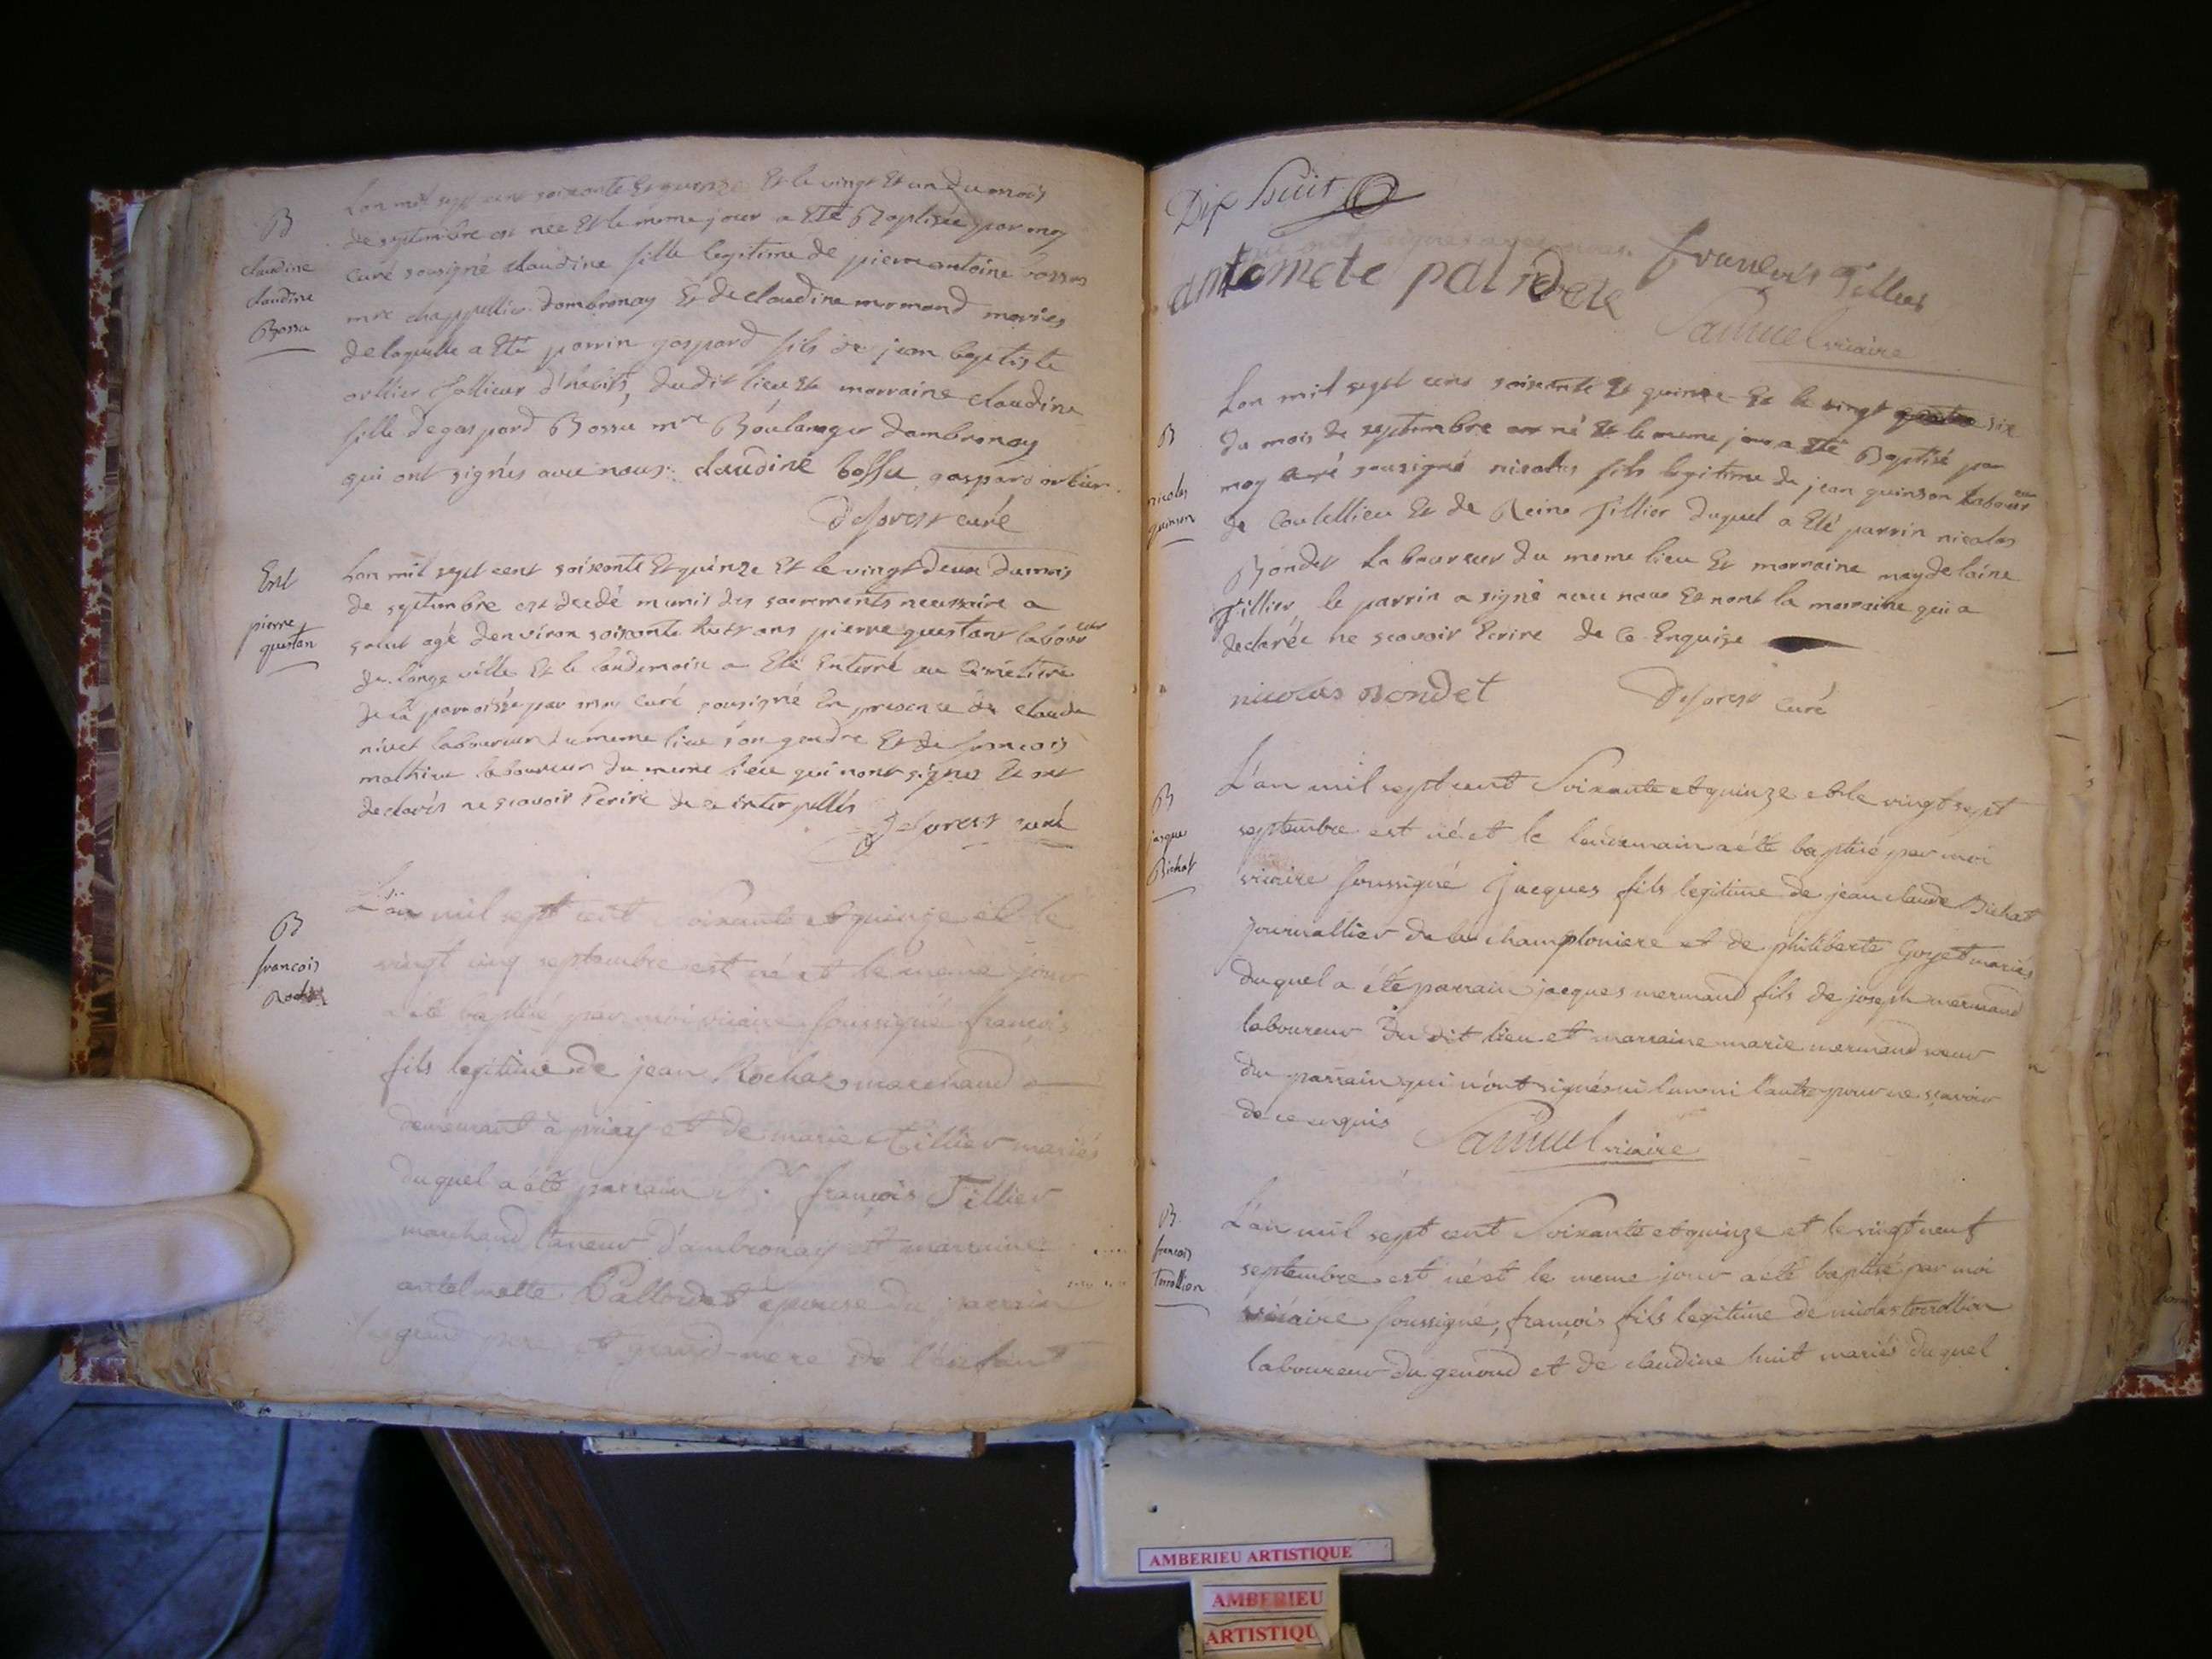 B
claudine
claudine
Bossu
Lan mil sept cent soixante Et quinze Et le vingt Et un du mois
de septembre est née Et le meme jour a Eté Baptisée par moy
curé sousigné claudine fille legitime de pierre antoine bossu
mre chappellier dambronay Et de claudine mermand mariés
de laquelle a Eté parrin gaspard fils de jean baptiste
ortlier tallieur d'habits, dudit lieu Et marraine claudine
fille de gaspard Bossu mre Boulanger dambronay
qui ont signés avec nous: claudine bossu gaspard ortlier
Deforest curé
Ent
pierre
questan
Lan mil sept cent soixante Et quinze Et le vingt deux du mois
de septembre est decdé munis des sacrements necessaire a
salut agé denviron soixante huit ans pierre questant laboureur
de longeville Et le landemain a Eté Enterré au Cimetiere
de la parroisse par moy curé sousigné En presence de claude
nivet laboureur du meme lieu son gendre Et de francois
mathieu laboureur du meme lieu qui nont signes Et ont
declarés ne scavoir Ecrire de ce interpellés
Deforest curé
B
francois
Rochas
L'an mil sept cent soixante et quinze et le
vingt cinq septembre est né et le même jour
a été baptisé par moi vicaire soussigné françois
fils legitime de jean Rochas marchand
demeurant à priay et de marie Tillier mariés
duquel a été parrain sr. françois Tillier
marchand taneur d'ambronay et marraine
antelmette Palloudet épouse du parrain
grand pere et grand-mere de l'enfant
Dix huit
qui ont signés avec nous
françois Tillier
Samuel vicaire
B
nicolas
quinson
Lan mil sept cent soixante Et quinze Et le vingt quatre six
du mois de septembre est né Et le meme jour a Eté Baptisé par
moy curé sousigné nicolas fils legitime de jean quinson Laboureur
de Coutellieu Et de Reine Tillier duquel a Eté parrin nicolas
Bondet Laboureur du meme lieu Et marraine maydelaine
Tillier, le parrin a signé avec nous Et nont la marraine qui a
declarée ne scavoir Ecrire de Ce Enquise
nicolas Bondet Deforest Curé
B
jacques
Bichat
L'an mil sept cent Soixante et quinze et le vingt sept
septembre est né et le lendemain a été baptisé par moi
vicaire soussigné Jacques fils legitime de jean claude Bichat
journallier de la champloniere et de philiberte Goyet mariés
duquel a été parrain jacques mermand fils de joseph mermand
laboureur du dit lieu et marraine marie mermand soeur
du parrain qui n'ont signés ni l'un ni l'autre pour ne scavoir
de ce enquis Samuel vicaire
B
francois
Tarollion
L'an mil sept cent Soixante et quinze et le vingt neuf
septembre est né et le meme jour a eté baptisé par moi
vicaire soussigné, françois fils legitime de nicolas
laboureur du genoud et de claudine huit mariés duquel
AMBERIEU ARTISTIQUE
AMBERIEU
ARTISTIQU